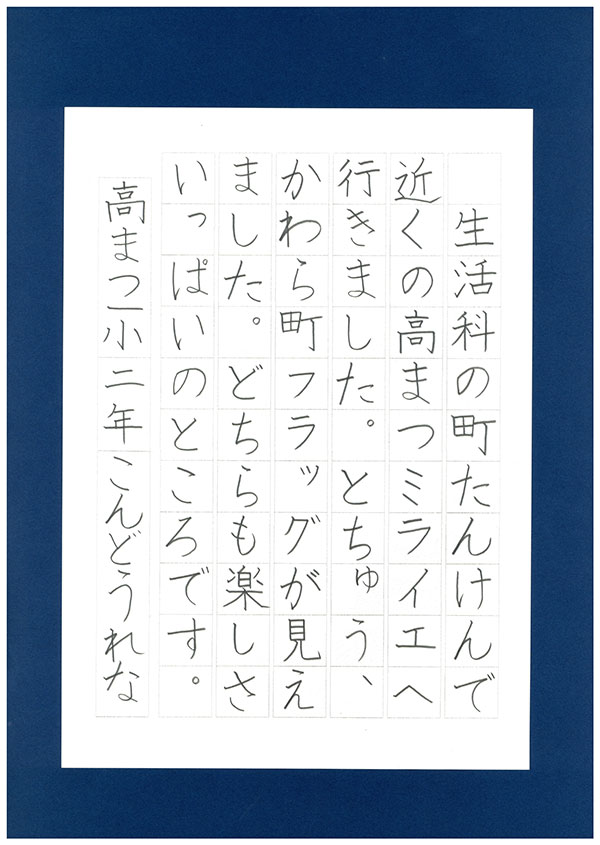 生活科の町たんけんで
近くの高まつミライエへ
行きました。とちゅう、
かわら町フラッグが見え
ました。どちらも楽しさ
いっぱいのところです。
高まつ一小二年こんどうれな